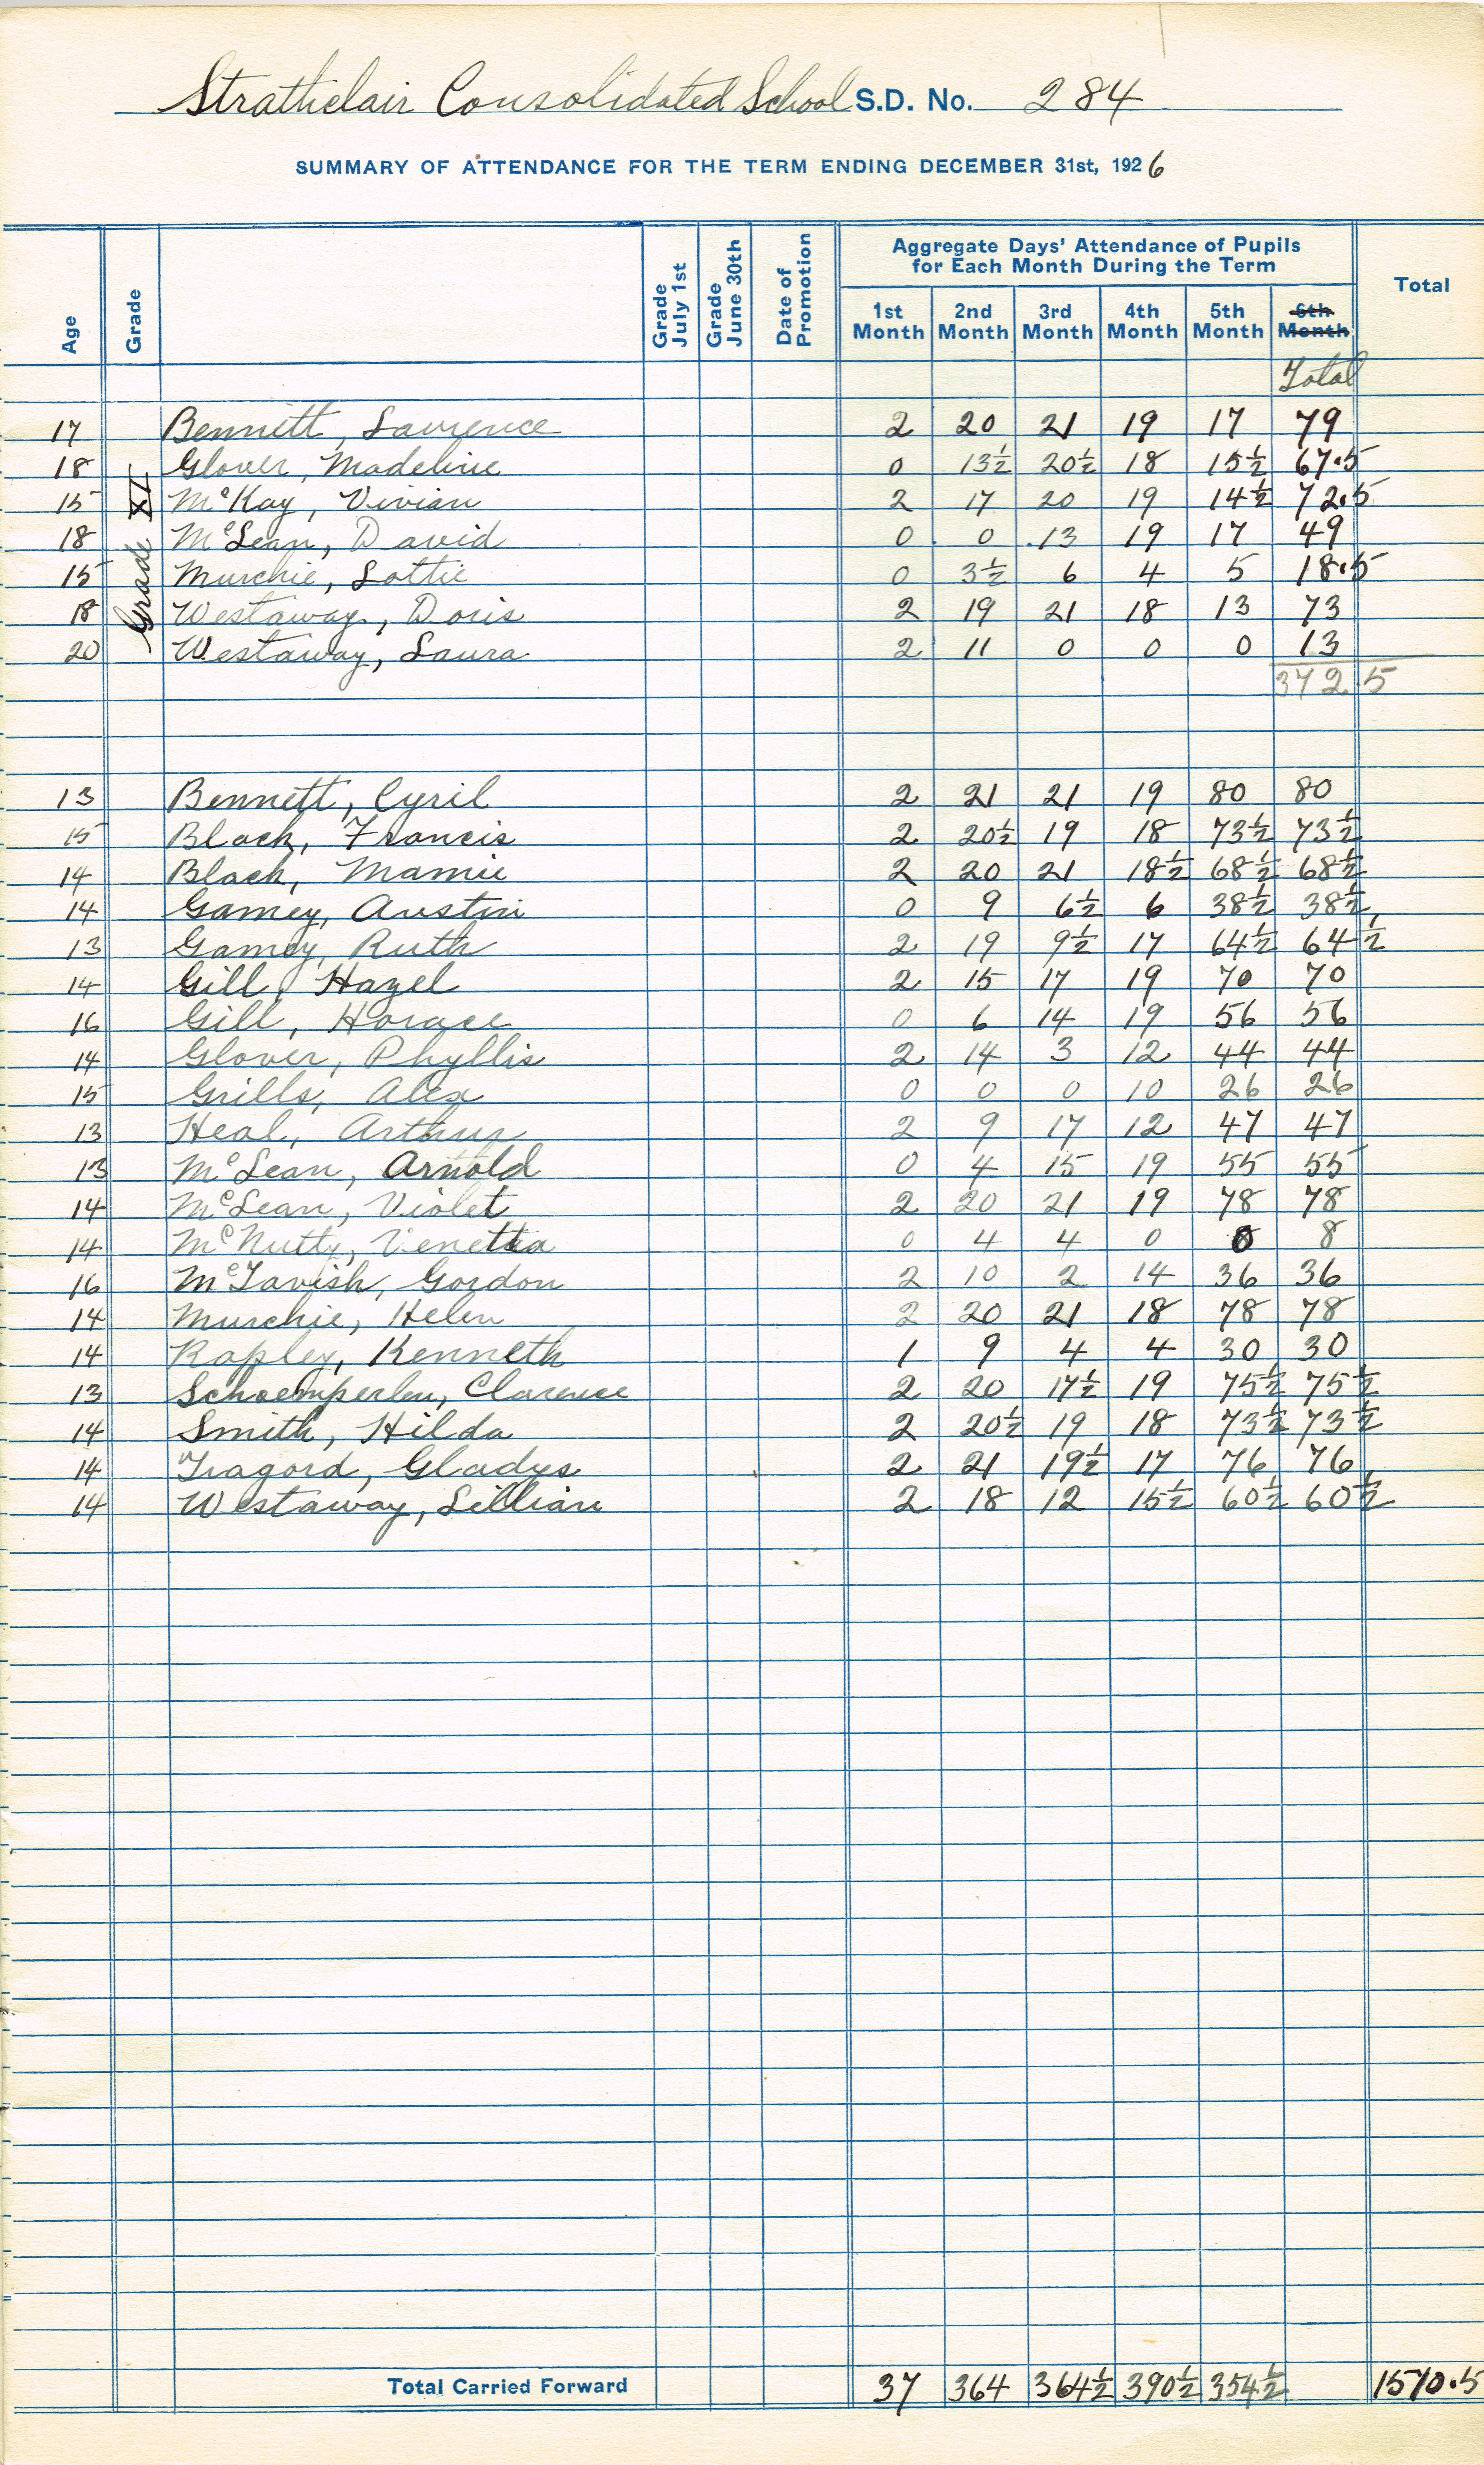 Strathclair Consolidated School S.D. No. 284
SUMMARY OF ATTENDANCE FOR THE TERM ENDING DECEMBER 31st, 1926
Aggregate Days' Attendance of Pupils
for Each Month During the Term
Age Grade Grade July 1st Grade June 30th Date of Promotion 1st Month 2nd Month 3rd Month 4th Month 5th Month 6th Month Total
Total
Grade XI
17 Bennett, Lawrence 2 20 21 19 17 79
18 Glover, Madeline 0 13½ 20½ 18 15½ 67.5
15 McKay, Vivian 2 17 20 19 14½ 72.5
18 McLean, David 0 0 13 19 17 49
15 Murchie, Lottie 0 3½ 6 4 5 18.5
18 Westaway, Doris 2 19 21 18 13 73
20 Westaway, Laura 2 11 0 0 0 13
372.5
13 Bennett, Cyril 2 21 21 19 80 80
15 Black, Francis 2 20½ 19 18 73½ 73½
14 Black, Mamie 2 20 21 18½ 68½ 68½
14 Gamey, Austin 0 9 6½ 6 38½ 38½
13 Gamey, Ruth 2 19 9½ 17 64½ 64½
14 Gill, Hazel 2 15 17 19 70 70
16 Gill, Horace 0 6 14 19 56 56
14 Glover, Phyllis 2 14 3 12 44 44
15 Grills, Alex 0 0 0 10 26 26
13 Heal, Arthur 2 9 17 12 47 47
13 McLean, Arnold 0 4 15 19 55 55
14 McLean, Violet 2 20 21 19 78 78
14 McNutty, Venetta 0 4 4 0 8 8
16 McTavish, Gordon 2 10 2 14 36 36
14 Murchie, Helen 2 20 21 18 78 78
14 Rapley, Kenneth 1 9 4 4 30 30
13 Schoemperlen, Clarence 2 20 17½ 19 75½ 75½
14 Smith, Hilda 2 20½ 19 18 73½ 73½
14 Tragord, Gladys 2 21 19½ 17 76 76
14 Westaway, Lillian 2 18 12 15½ 60½ 60½
Total Carried Forward 37 364 364½ 390½ 354½ 1510.5